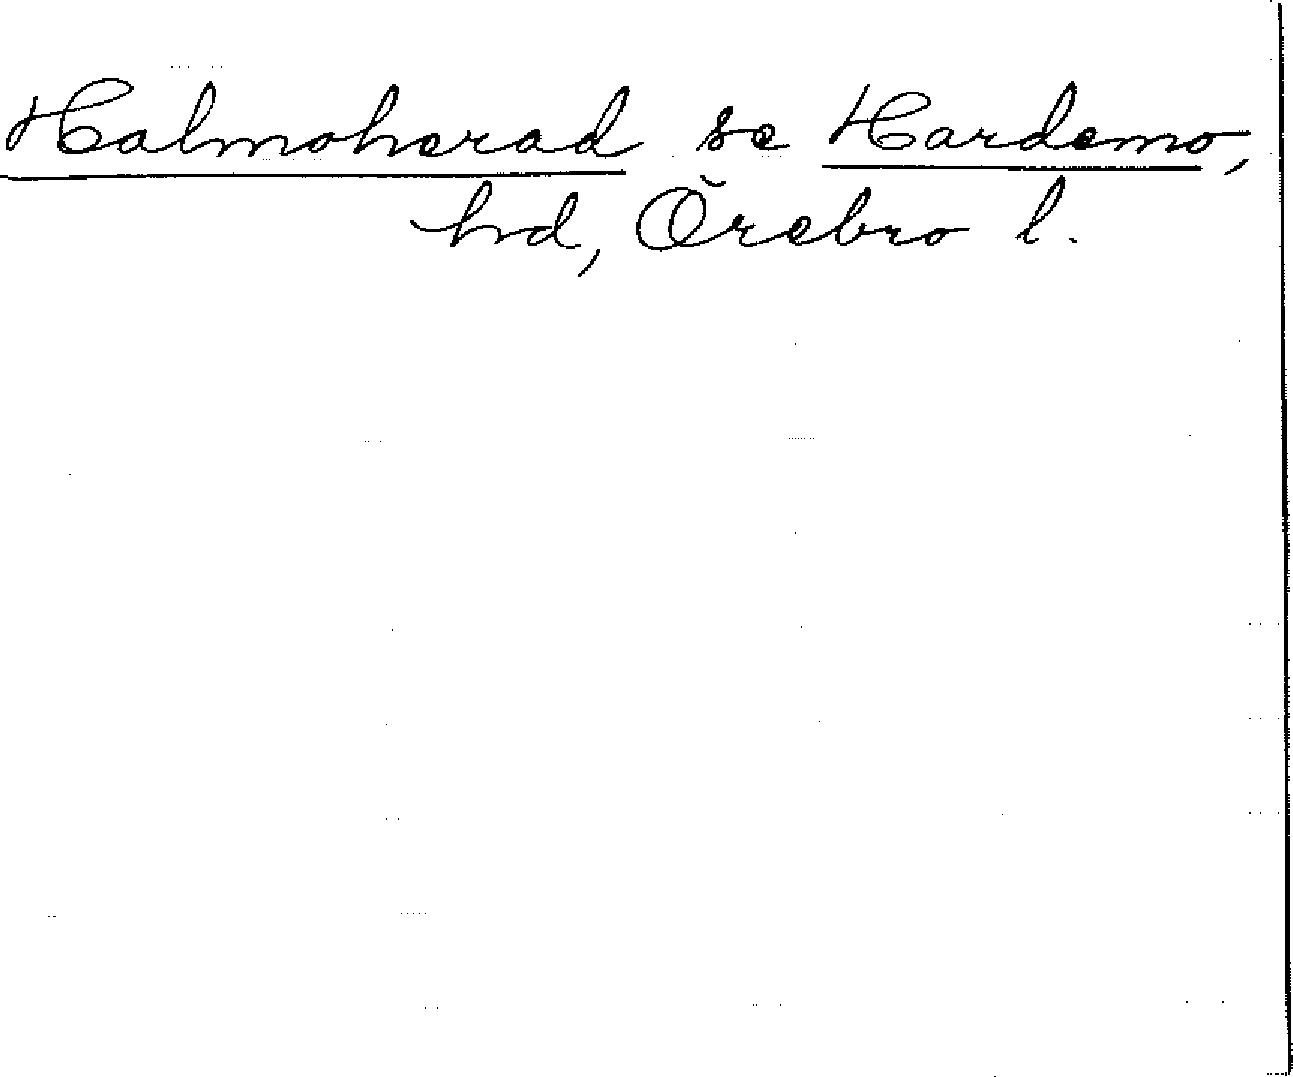 Halmoherad se Hardemo,
hd, Örebro l.